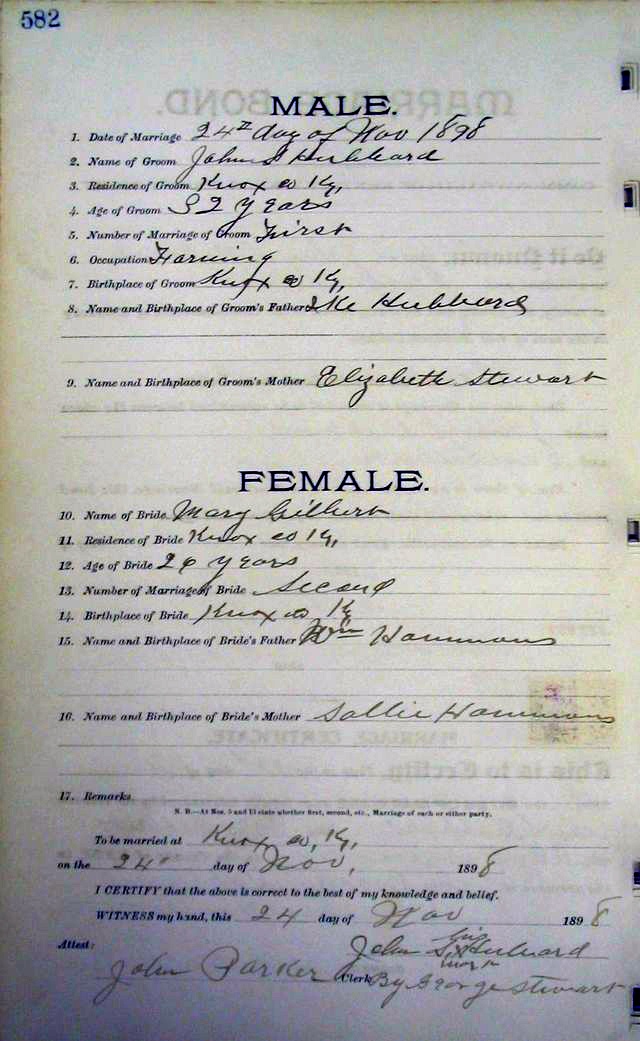 582
MALE.
1. Date of Marriage 24th day of Nov 1898
2. Name of Groom John S Hubbard
3. Residence of Groom Knox co Ky,
4. Age of Groom 32 years
5. Number of Marriage of Groom First
6. Occupation Farming
7. Birthplace of Groom Knox co Ky,
8. Name and Birthplace of Groom's Father Ike Hubbard
9. Name and Birthplace of Groom's Mother Elizabeth Stewart
FEMALE.
10. Name of Bride Mary Gilbert
11. Residence of Bride Knox co Ky,
12. Age of Bride 26 years
13. Number of Marriage of Bride Second
14. Birthplace of Bride Knox co Ky
15. Name and Birthplace of Bride's Father Wm Hammons
16. Name and Birthplace of Bride's Mother Sallie Hammons
17. Remarks
N. B.—At Nos. 5 and 13 state whether first, second, etc., Marriage of each or either party.
To be married at Knox co, Ky,
on the 24" day of Nov, 1898
I CERTIFY that the above is correct to the best of my knowledge and belief.
WITNESS my hand, this 24 day of Nov 1898
his
Attest: John S. x Hubbard
mark
John Parker Clerk By George Stewart